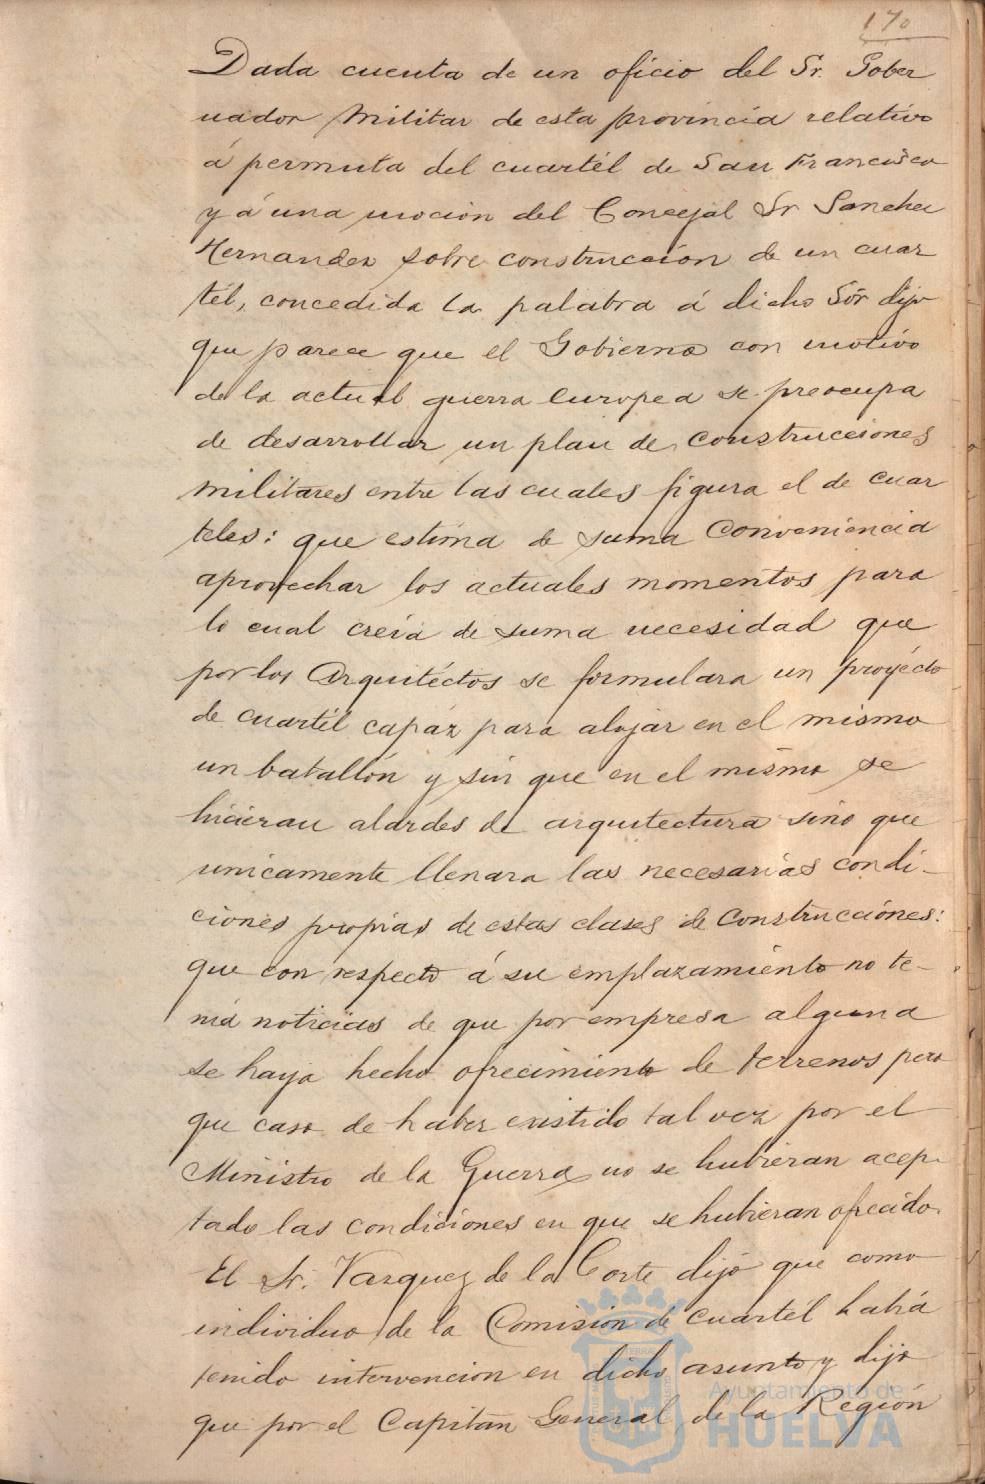 170
Dada cuenta de un oficio del Sr. Gober
nador Militar de esta provincia relativo
á permuta del cuartél de San Francisco
y á una moción del Concejal Sr Sanchez
Hernandez sobre construcción de un cuar
tél, concedida la palabra á dicho Sór dijo
que parece que el Gobierno con motivo
de la actual guerra europea se preocupa
de desarrollar un plan de construcciones
militares entre las cuales figura el de cuar
teles: que estima de suma conveniencia
aprovechar los actuales momentos para
lo cual creia de suma necesidad que
por los Arquitéctos se formulara un proyécto
de cuartél capáz para alojar en el mismo
un batallón y sin que en el mismo se
hicieran alardes de arquitectura sino que
unicamente llenara las necesarias condi-
ciones propias de estas clases de construcciones:
que con respecto á su emplazamiento no te-
niá noticias de que por empresa alguna
se haya hecho ofrecimiento de terrenos pero
que caso de haber existido tal vez por el
Ministro de la Guerra no se hubieran acep-
tado las condiciones en que se hubieran ofrecido.
El Sr. Vazquez de la Corte dijó que como
individuo de la Comisión de cuartél habiá
tenido intervencion en dicho asunto y dijo
que por el Capitán General de la Región
Ayuntamiento de
HUELVA